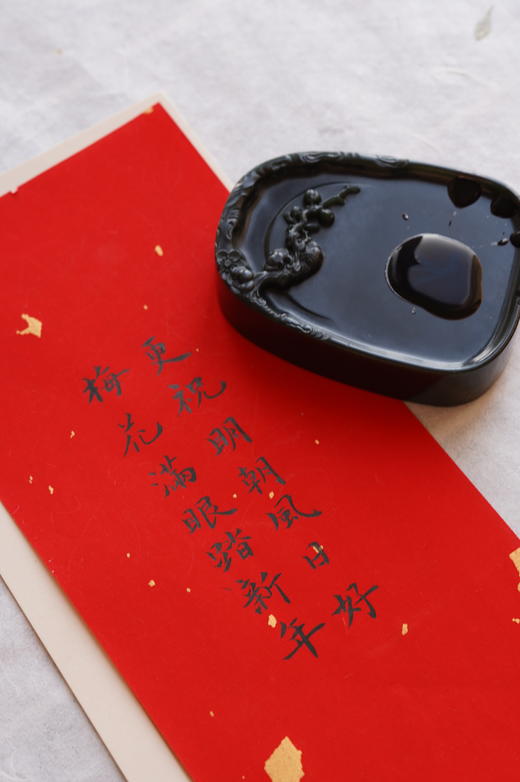 更祝明朝風日好
梅花滿眼踏新年